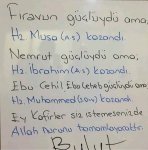 Firavun güçlüydü ama,
Hz. Musa (A.S) kazandı.
Nemrut güçlüydü ama,
Hz. İbrahim (A.S) kazandı.
Ebu Cehil Ebu Leheb güçlüydü ama
Hz. Muhammed (S.A.V) kazandı.
Ey Kafirler siz istemesenizde
Allah nurunu tamamlayacaktır.
Bulut